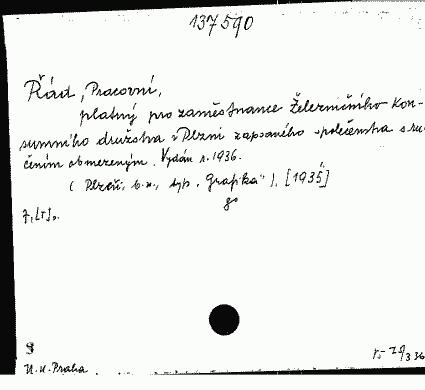 137590
Řád, Pracovní,
platný pro zaměstnance Železničního Kon-
sumního družstva v Plzni zapsaného společenstva s ru-
čením obmezeným. Vydán r. 1936.
( Plzeň, b.n., typ. „Grafika“ ). [1935]
8°
7, [1] s.
U. K. Praha